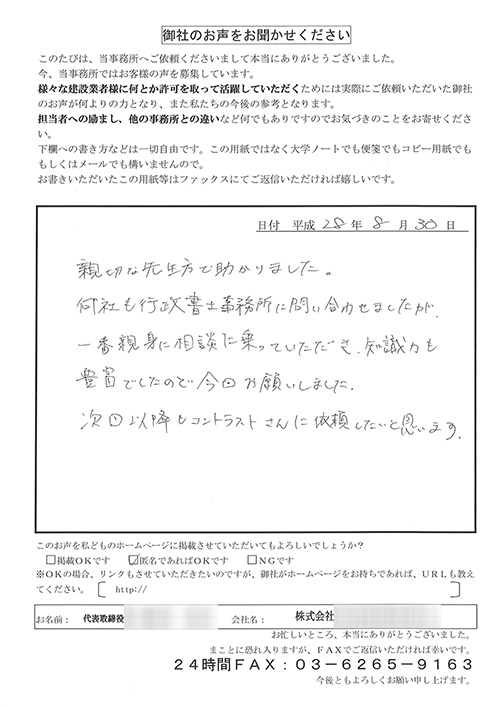 御社のお声をお聞かせください
このたびは、当事務所へご依頼くださいまして本当にありがとうございました。
今、当事務所ではお客様の声を募集しています。
様々な建設業者様に何とか許可を取って活躍していただくためには実際にご依頼いただいた御社
のお声が何よりの力となり、また私たちの今後の参考となります。
担当者への励まし、他の事務所との違いなど何でもありですのでお気づきのことをお寄せくださ
い。
下欄への書き方などは一切自由です。この用紙ではなく大学ノートでも便箋でもコピー用紙でも
もしくはメールでも構いませんので。
お書きいただいたこの用紙等はファックスにてご返信いただければ嬉しいです。
日付 平成 28 年 8 月 30 日
親切な先生方で助かりました。
何社も行政書士事務所に問い合わせましたが、
一番親身に相談に乗っていただき、知識力も
豊富でしたので今回お願いしました。
次回以降もコントラストさんに依頼したいと思います。
このお声を私どものホームページに掲載させていただいてもよろしいでしょうか?
□掲載OKです ☑匿名であればOKです □NGです
※OKの場合、リンクもさせていただきたいのですが、御社がホームページをお持ちであれば、URLも教え
てください。〔 http:// 〕
お名前: 代表取締役 会社名: 株式会社
お忙しいところ、本当にありがとうございました。
まことに恐れ入りますが、FAXでご返信いただければ幸いです。
24時間FAX:03-6265-9163
今後ともよろしくお願い申し上げます。